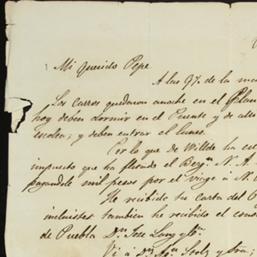 Mi Querido Pepe
A las 9 1/2 de la ma
Los carros quedaron anoche en el Plan
hoy deben dormir en el Puente y de alli
escolta; y deben entrar el lunes.
Por lo que de Wilde ha
impuesto que ha fletado el Berg.n N. A.
pagandole mil pesos por el viage á N.
He recibido su carta del
inclusives tambien he recibido el
de Puebla D.n Jose
Vi á D.n